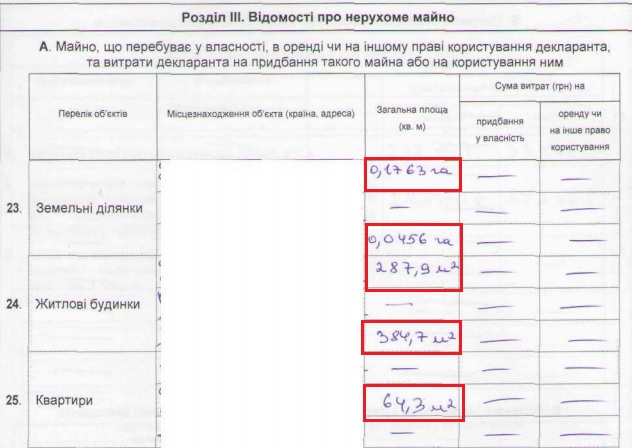 Розділ III. Відомості про нерухоме майно
А. Майно, що перебуває у власності, в оренді чи на іншому праві користування декларанта,
та витрати декларанта на придбання такого майна або на користування ним
Перелік об'єктів
Місцезнаходження об'єкта (країна, адреса)
Загальна площа
(кв. м)
Сума витрат (грн) на
придбання
у власність
оренду чи
на інше право
користування
0,1763 га — —
— — —
23. Земельні ділянки
0,0456 га — —
287,9 м² — —
24. Житлові будинки — — —
384,7 м² — —
— — —
25. Квартири 64,3 м² — —
— — —